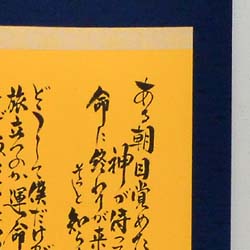 ある朝目覚めた
神が待っ
命に終わりが来
そっと知ら
どうして僕だけが
旅立つのか運命